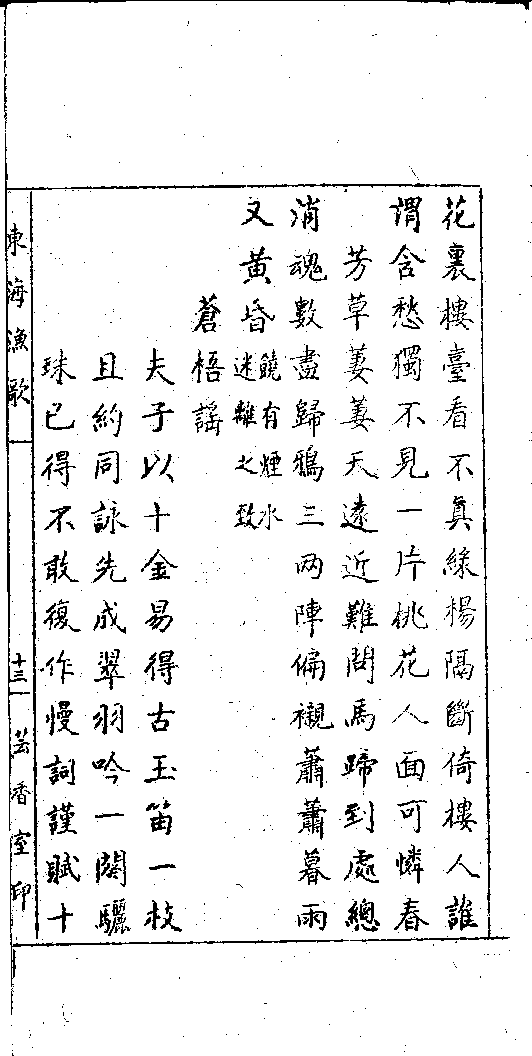 花裏樓臺看不真緑楊隔斷倚樓人誰
謂含愁獨不見一片桃花人面可憐春
芳草萋萋天遠近難問馬蹄到處總
消魂數盡歸鴉三两陣偏襯蕭蕭暮雨
又黄昏饒有煙水迷離之致
蒼梧謡
夫子以十金易得古玉笛一枝
且約同詠先成翠羽吟一闋驪
珠已得不敢復作慢詞謹賦十
東海漁歌
十三
芸香室印